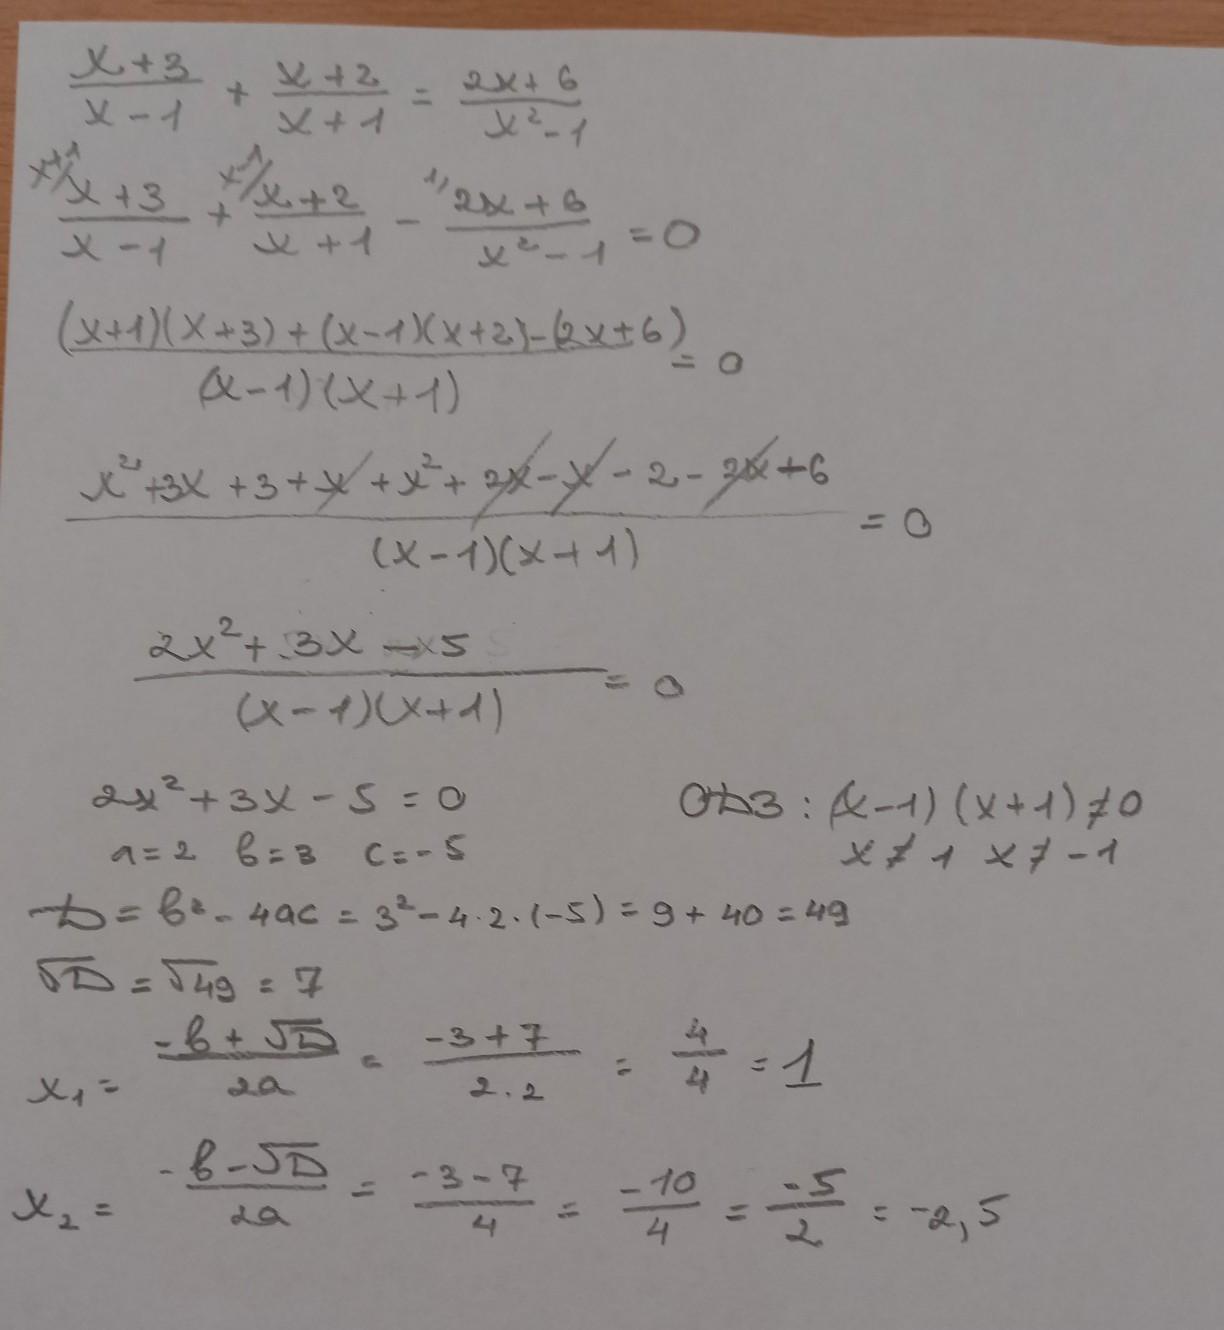 (x+3)/(x-1) + (x+2)/(x+1) = (2x+6)/(x²-1)
x+1/ (x+3)/(x-1) + x-1/ (x+2)/(x+1) - 1/ (2x+6)/(x²-1) = 0
((x+1)(x+3)+(x-1)(x+2)-(2x+6))/((x-1)(x+1)) = 0
(x²+3x+3+x+x²+2x-x-2-2x+6)/((x-1)(x+1)) = 0
(2x²+3x-5)/((x-1)(x+1)) = 0
2x²+3x-5=0 ОДЗ: (x-1)(x+1)≠0
a=2 b=3 c=-5 x≠1 x≠-1
D=b²-4ac=3²-4·2·(-5)=9+40=49
√D=√49=7
x₁= (-b+√D)/2a = (-3+7)/(2·2) = 4/4 = 1
x₂= (-b-√D)/2a = (-3-7)/4 = -10/4 = -5/2 = -2,5